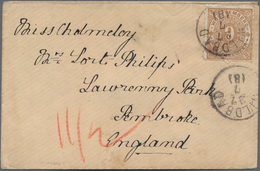 Miss Cholmeley
Mrs Lort Philips
Lawrenny Park
Pembroke
England
11/2